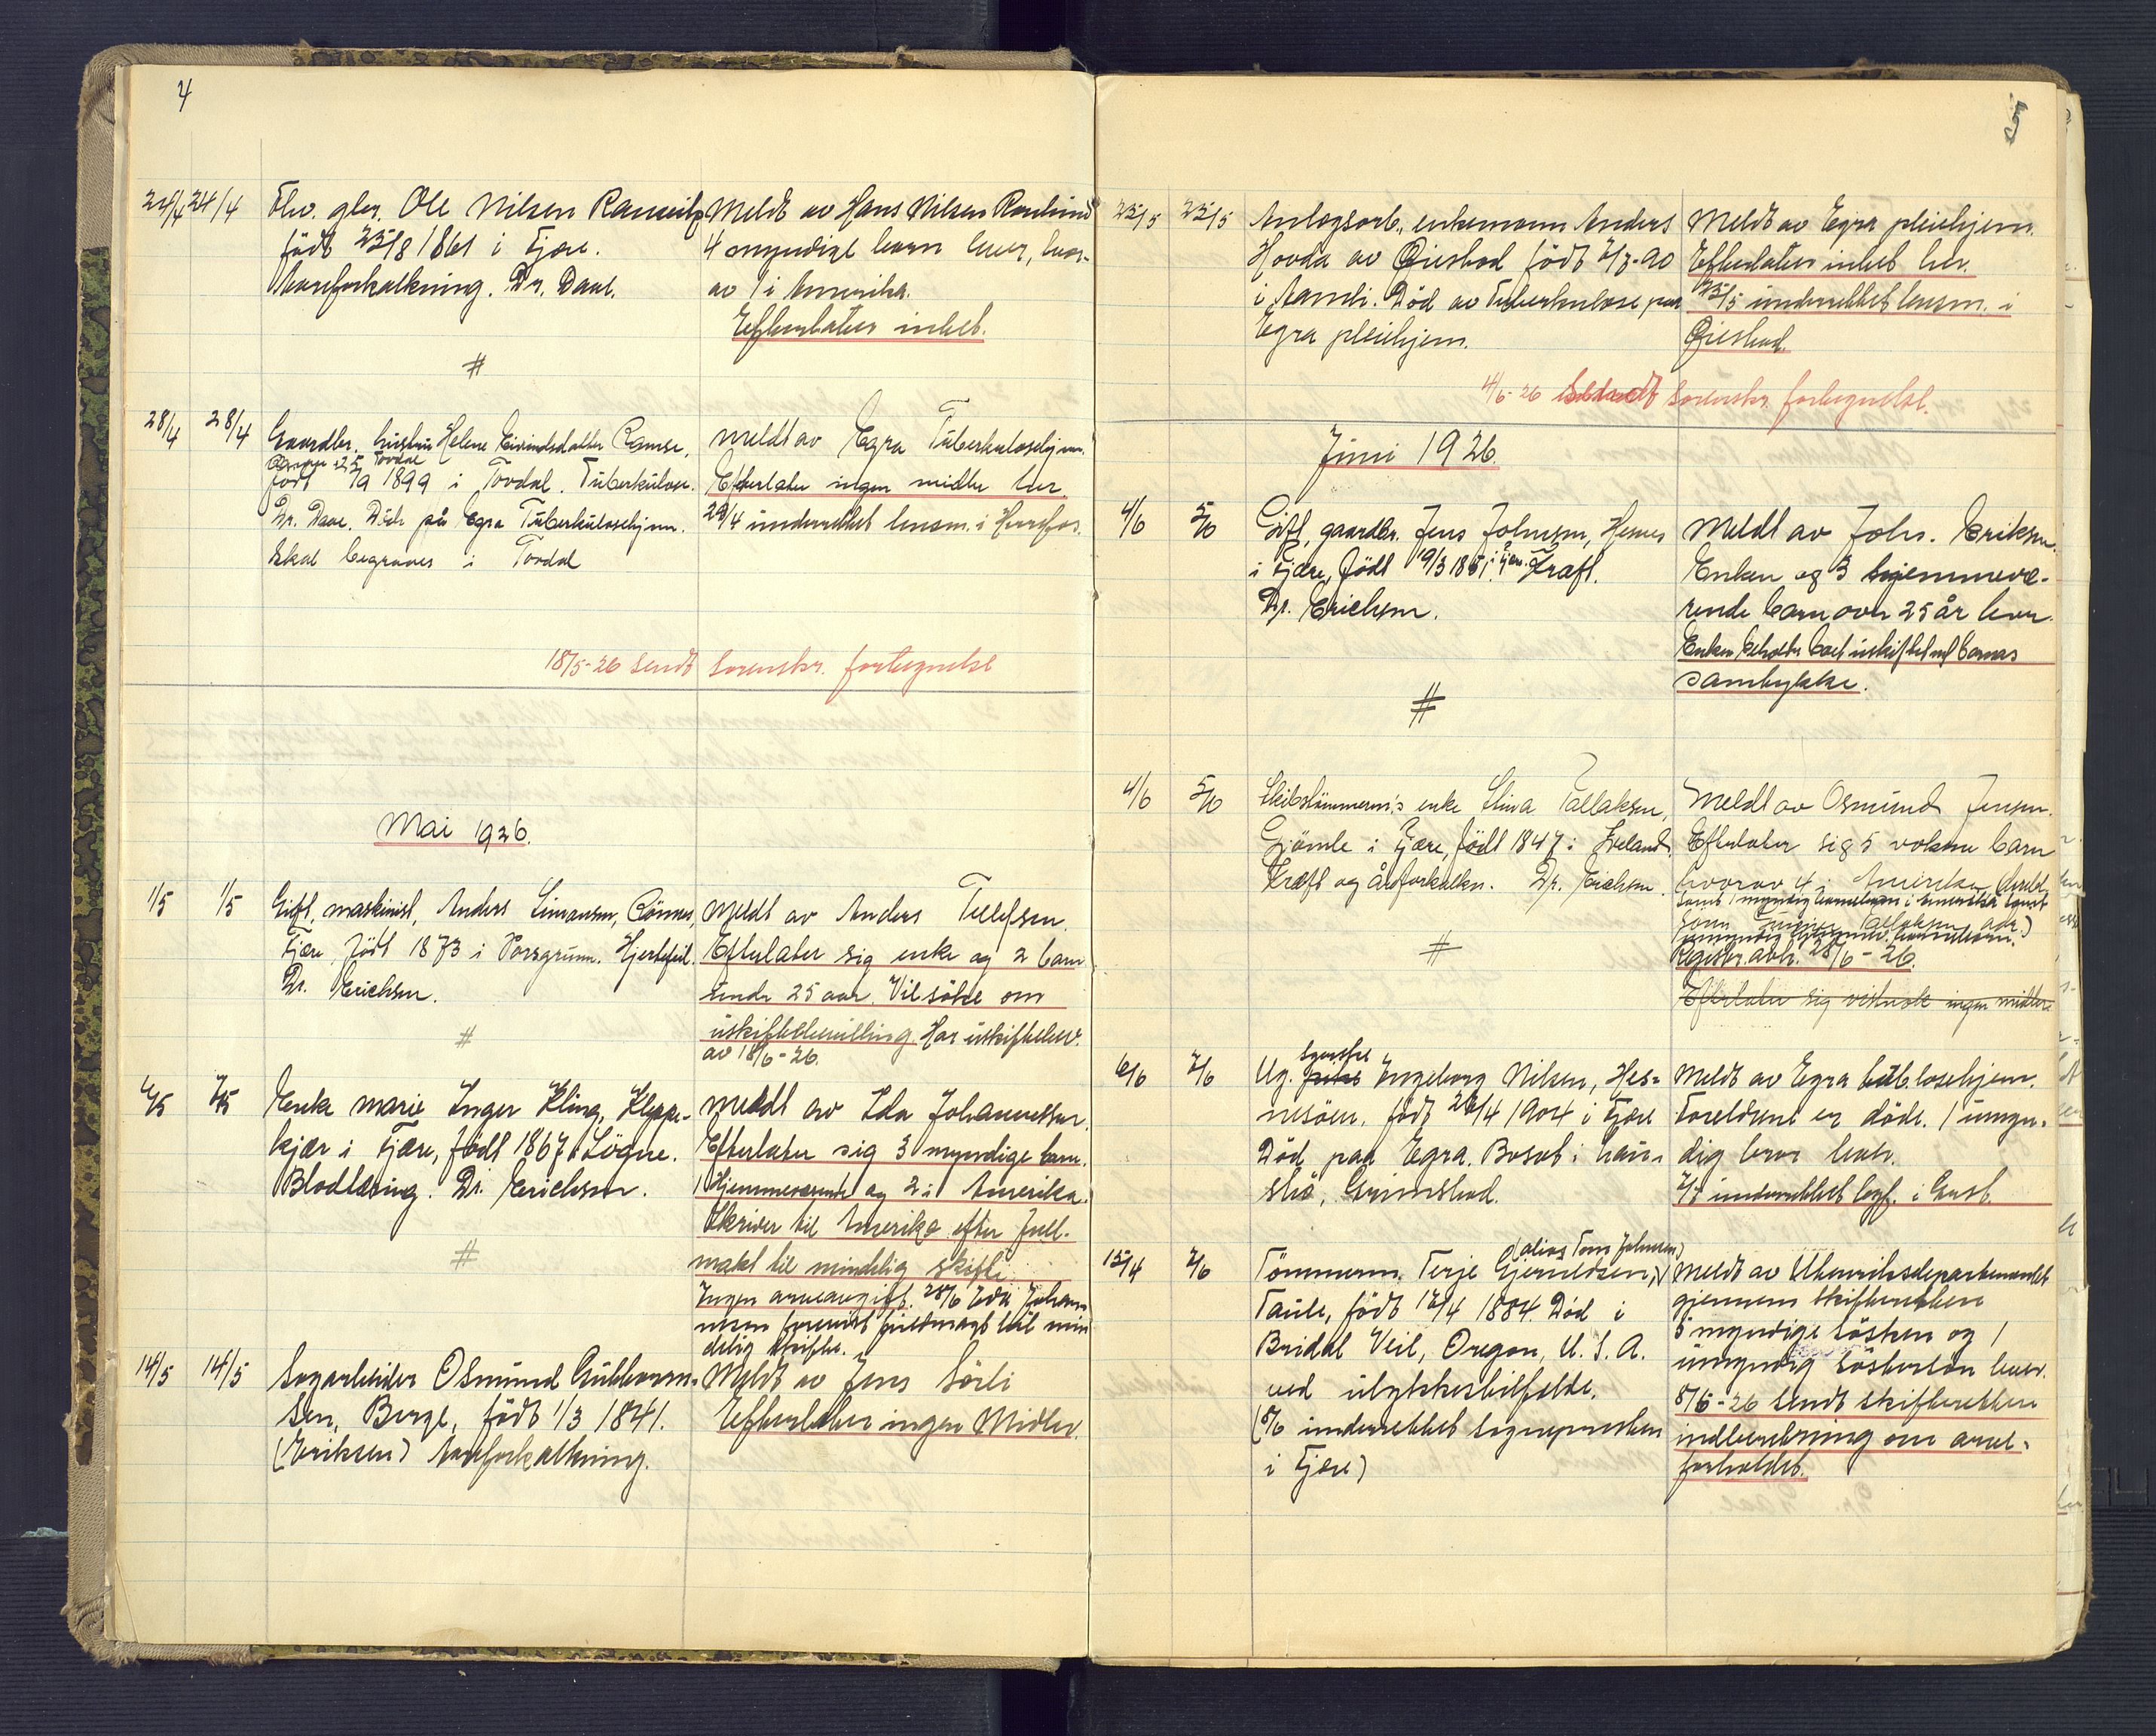 4
24/4 24/4 Fhv. gbr. Ole Nilsen
født 25/8 1861 i Fjære.
Aareforkalkning. Dr. Daae.
Meldt av Hans Nilsen
4 myndige barn lever, hvor-
av 1 i Amerika.
Efterlater intet.
#
28/4 28/4 Gaardbr. hustru Helene Eivindsdatter Ramse,
Ramse i Tovdal
født 1899 i Tovdal. Tuberkulose.
Dr. Daae. Död på Egra Tuberkulosehjem.
Skal begraves i Tovdal
Meldt av Egra Tuberkulosehjem.
Efterlater ingen midler her.
28/4 underrettet lensm. i Herefos.
18/5-26 sendt sorenskr. fortegnelse
Mai 1926.
1/5 1/5 Gift, maskinist, Anders Simonsen, Rönnes,
Fjære, født 1873 i Porsgrunn. Hjertefeil.
Dr. Erichsen.
#
Meldt av Anders Tellefsen.
Efterlater sig enke og 2 barn
under 25 aar. Vil söke om
uskiftebevilling. Har uskiftebev.
av 18/6-26.
Enke Marie Inger Kling, Kleppe-
kjær i Fjære, født 1867 i Sögne.
Blodlæring. Dr. Erichsen.
#
Meldt av Ida Johannessen.
Efterlater sig 3 myndige barn.
1 Hjemmeværende og 2 i Amerika.
Skriver til Amerika efter full-
makt til mindelig skifte.
Ingen arveavgift. 28/6 Ida Johan-
nesen forevist fuldmagt til min
delig skifte.
14/5 14/5 Sagarbeider Osmund Gubborm-
sen, Berge, født 1/3 1841.
(Eriksen) Aareforkalkning.
Meldt av Jens Sörli
Efterlater ingen Midler.
5
25/5 25/5 Anlegsarb., enkemann Anders
Hovda av Øiestad født 2/3-90
i Aamli. Död av Tuberkulose paa
Egra pleiehjem.
Meldt av Egra pleiehjem.
Efterlater intet her.
25/5 underrettet lensm. i
Øiestad.
4/6-26 Sendt sorenskr. fortegnelse.
Juni 1926.
4/6 5/6 Gift, gaardbr. Jens Johnsen, Hesnes
i Fjære, født 19/3 1851 i Fjære. Kræft.
Dr. Erichsen.
Meldt av Johs. Eriksen.
Enken og 3 hjemmevæ-
rende barn over 25 år lever.
Enken beholder boet uskiftet med barnas
samtykke.
#
4/6 5/6 Skibstömmerm.s enke Stina Tallaksen,
Gjömle i Fjære, født 1847 i Iveland.
Kræft og åreforkalkn. Dr. Erichsen.
#
Meldt av Osmund Jensen.
Efterlater sig 5 voksne barn
hvorav 4 i Amerika
samt 1 myndig barnebarn i Amerika
Tallaksen adr.)
Registr. avh. 28/6-26.
Efterlater sig visstnok ingen midler
6/6 7/6 Ug. syerske Ingeborg Nilsen, Hes-
nesöen, født 26/4 1904 i Fjære
Död paa Egra. Bosat i
Grimstad.
Meldt av Egra tub.losehjem.
Foreldrene er döde. 1 umyn-
dig bror lever.
7/6 underrettet byf. i Gmst.
15/4 7/6 Tömmerm. Terje Gjeruldsen, (alias Tom Johnsen)
Taule, født 12/4 1884. Död i
Bridal Veil, Oregon, U. S. A.
ved ulykkestilfelde.
(8/6 underrettet sogneprästen
i Fjære)
Meldt av Utenriksdepartementet
gjennem Skifteretten
5 myndige søsken og 1
umyndig lever.
8/6-26 sendt skifteretten
indberetning om arve-
forholdet.